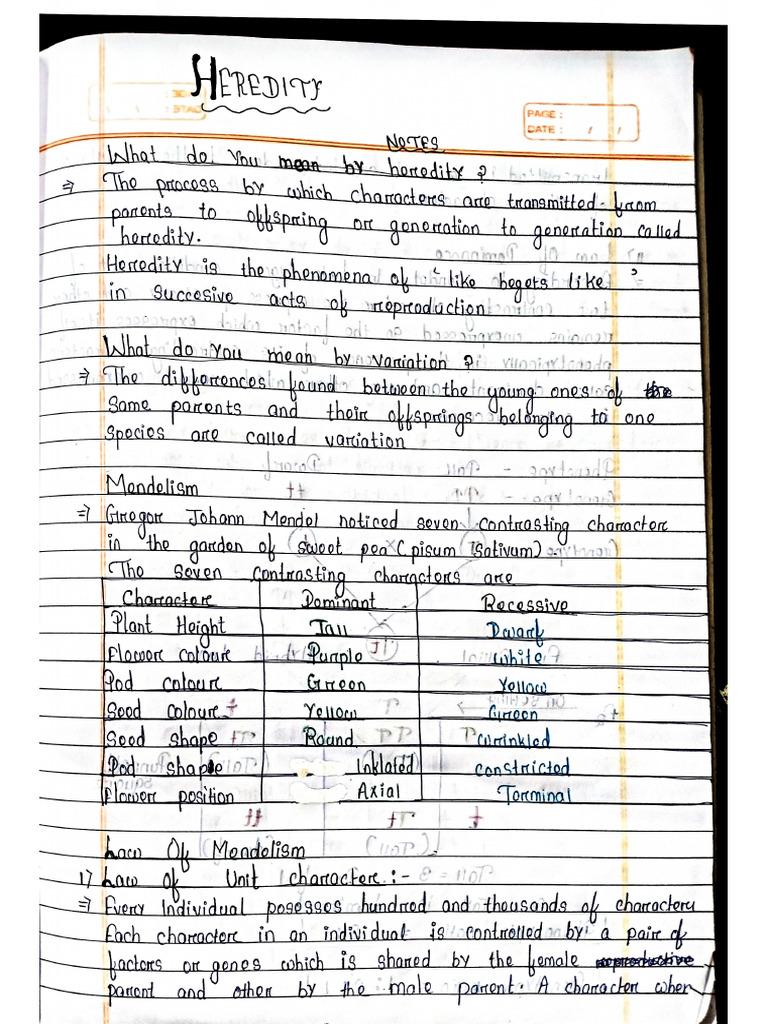 HEREDITY
PAGE :
DATE : / /
NOTES
What do you mean by heredity ?
⇒ The process by which characters are transmitted from
parents to offspring or generation to generation called
heredity.
Heredity is the phenomena of 'like begets like'
in succesive acts of reproduction
What do you mean by variation ?
⇒ The differences found between the young ones of
same parents and their offsprings belonging to one
species are called variation
Mendelism
⇒ Gregor Johann Mendel noticed seven contrasting character
in the garden of sweet pea (pisum sativum)
The seven contrasting characters are
Character Dominant Recessive
Plant Height Tall Dwarf
Flower colour Purple white
Pod colour Green Yellow
Seed colour Yellow Green
Seed shape Round wrinkled
Pod shape Inflated constricted
Flower position Axial Terminal
Law Of Mendelism
1) Law of Unit character :-
⇒ Every Individual posesses hundred and thousands of characters
Each character in an individual is controlled by a pair of
factors or genes which is shared by the female reproductive
parent and other by the male parent. A character when